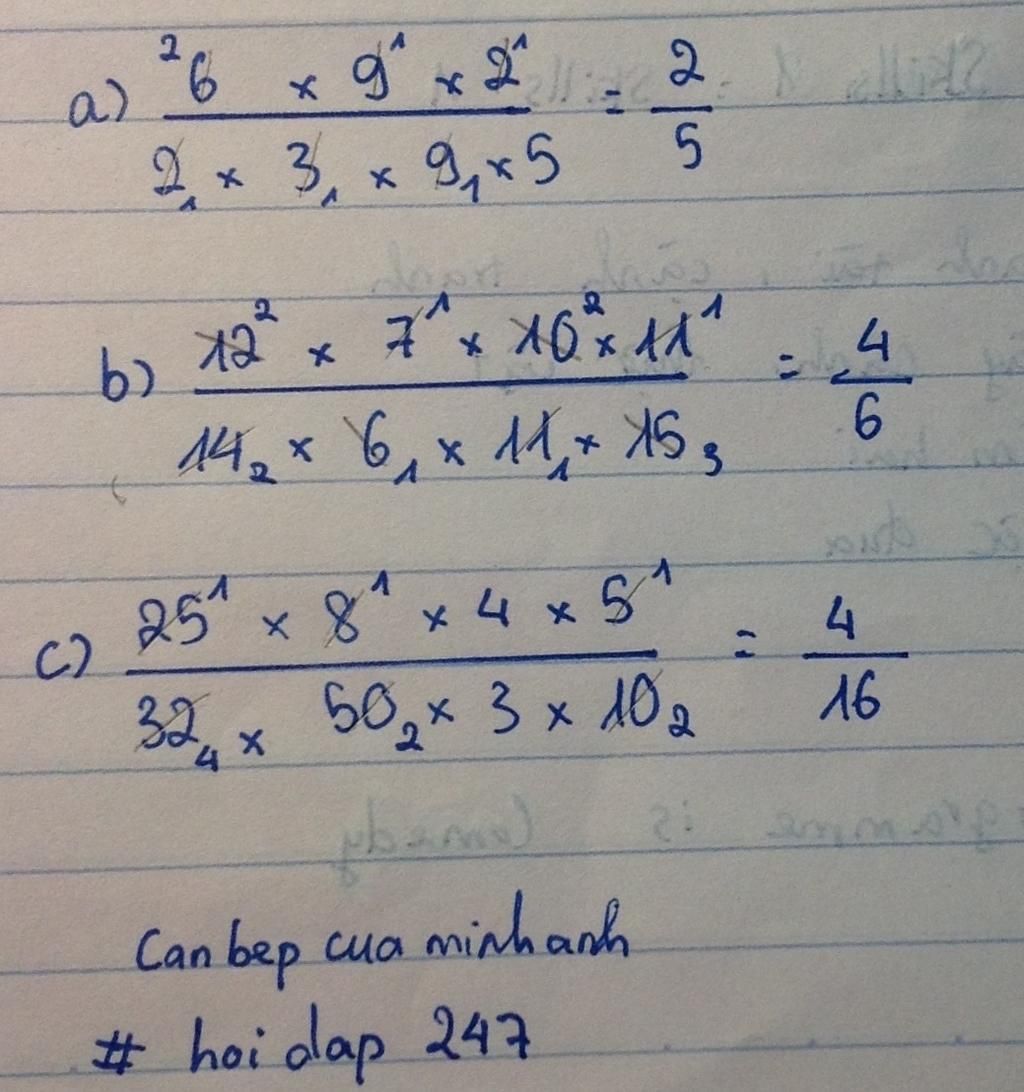 a) ²6 × 9¹ × 2¹ / 2₁ × 3₁ × 9₁ × 5 = 2/5
b) 12² × 7¹ × 10² × 11¹ / 14₂ × 6₁ × 11₁ × 15₃ = 4/6
c) 25¹ × 8¹ × 4 × 5¹ / 32₄ × 50₂ × 3 × 10₂ = 4/16
Can bep cua minh anh
# hoi dap 247